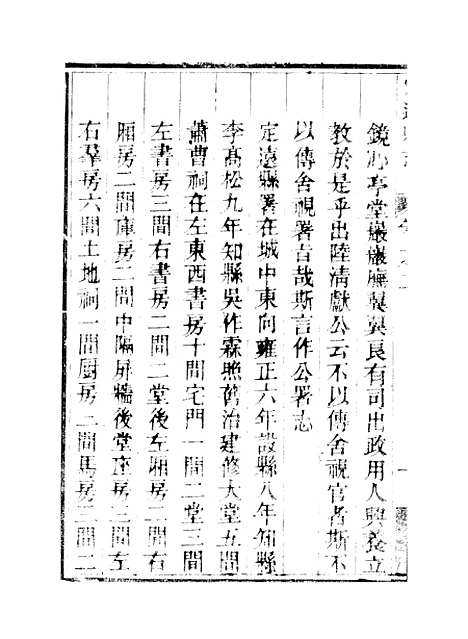 鏡心亭堂巖巖廡翼翼良有司出政用人興養立
教於是乎出陸清獻公云不以傳舍視官者斯不
以傳舍視署旨哉斯言作公署志
定遠縣署在城中東向雍正六年設縣八年知縣
李高松九年知縣吳作霖照舊治建修大堂五間
蕭曹祠在左東西書房十間宅門一間二堂三間
左書房三間右書房二間二堂後左厢房二間右
厢房二間庫房二間中隔屏牆後堂住房三間左
右羣房六間土地祠一間厨房二間馬房二間二